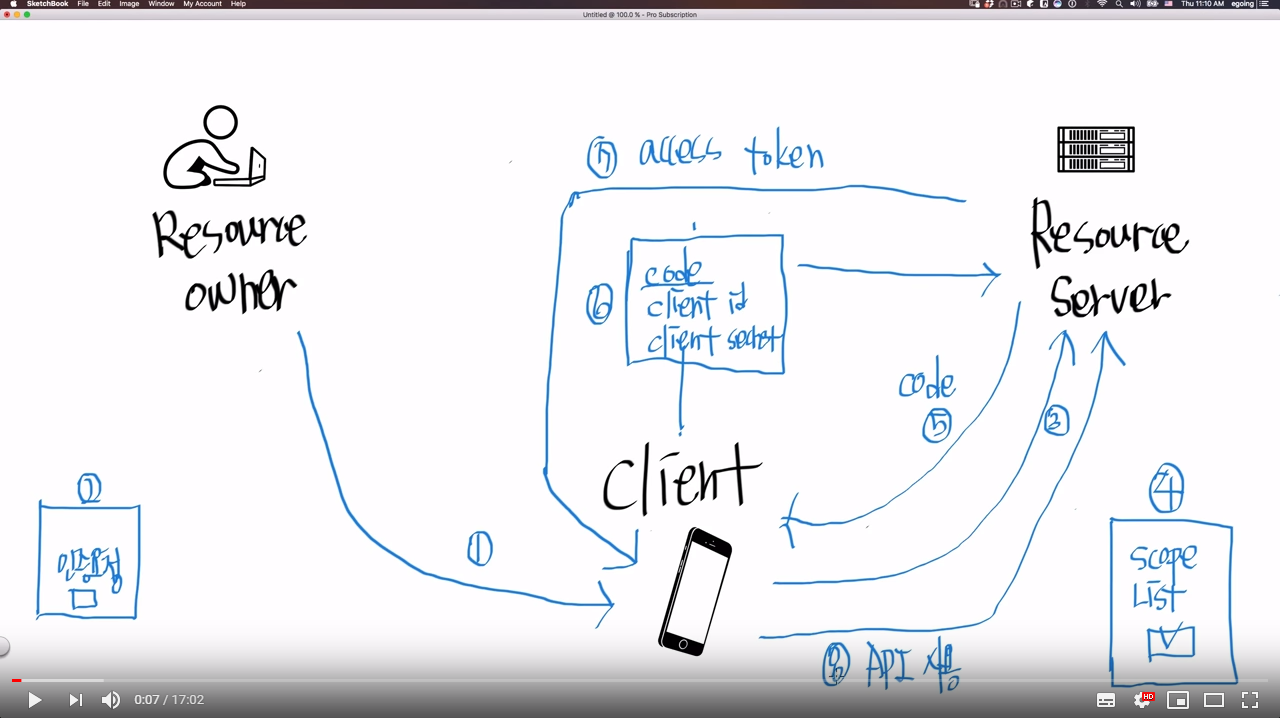 SketchBook File Edit Image Window My Account Help
Thu 11:10 AM egoing
Untitled @ 100.0 % - Pro Subscription
⑦ access token
Resource
owner
Resource
Server
⑥
code
client id
client secret
code
⑤
③
Client
②
인증요청
①
④
scope
List
⑧ API 사용
0:07 / 17:02
HD